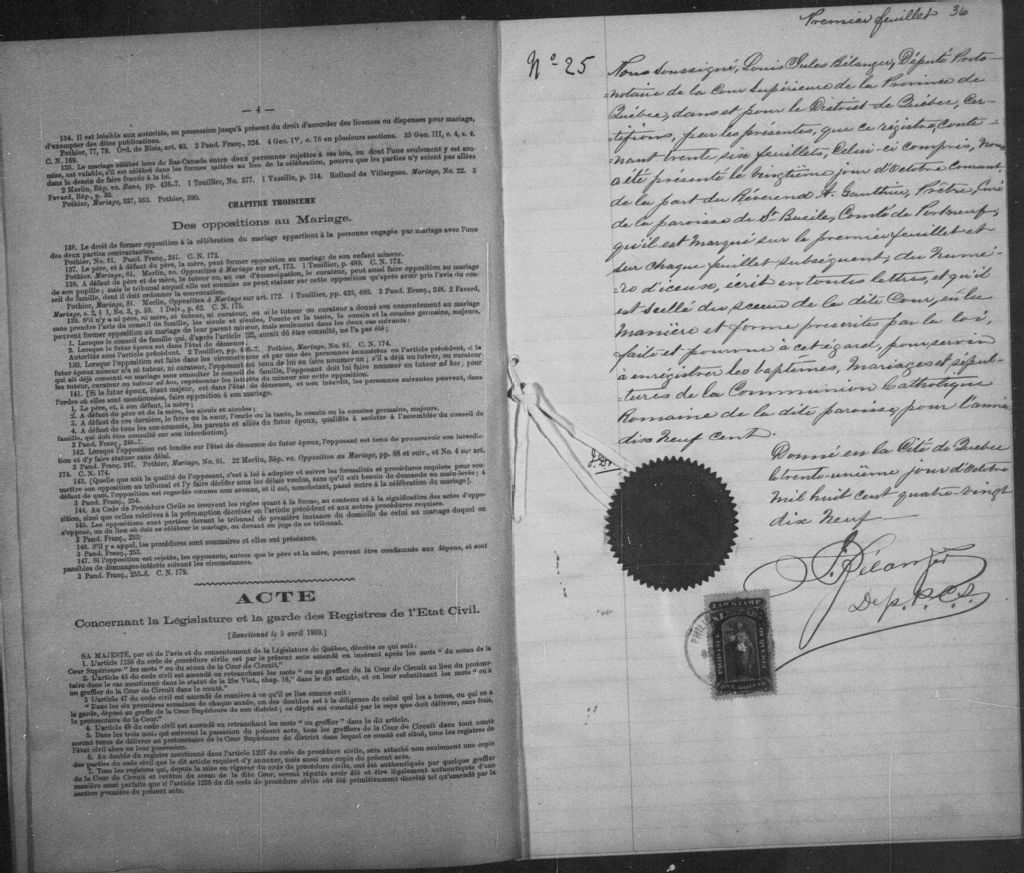 — 4 —
134. Il est loisible aux autorités, en possession jusqu'à présent du droit d'accorder des licences ou dispenses pour mariage,
d'exempter des dites publications.
Pothier, 77, 78. Ord. de Blois, art. 40. 2 Pand. Franç., 324. 4 Geo. IV, c. 76 en plusieurs sections. 35 Geo. III, c. 4, s. 4.
C. N. 169.
135. Le mariage célébré hors du Bas-Canada entre deux personnes sujettes à ses lois, ou dont l'une seulement y est sou-
mise, est valable, s'il est célébré dans les formes usitées au lieu de la célébration, pourvu que les parties n'y soient pas allées
dans le dessin de faire fraude à la loi.
2 Merlin, Rép. vo. Bans, pp. 436-7. 1 Touillier, No. 577. 1 Vazeille, p. 314. Rolland de Villargues. Mariage, No. 22. 3
Favard, Rép., p. 30.
Pothier, Mariage, 327, 363. Pothier, 390.
CHAPITRE TROISIEME
Des oppositions au Mariage.
136. Le droit de former opposition à la célébration du mariage appartient à la personne engagée par mariage avec l'une
des deux parties contractantes.
Pothier, No. 81. Pand. Franç., 241. C. N. 172.
137. Le père, et à défaut du père, la mère, peut former opposition au mariage de son enfant mineur.
Pothier, Mariage, 81. Merlin, vo. Opposition à Mariage sur art. 173. 1 Touillier, p. 489. C. N. 173.
138. A défaut de père et de mère, le tuteur ou, au cas d'émancipation, le curateur, peut aussi faire opposition au mariage
de son pupille ; mais le tribunal auquel elle est soumise ne peut statuer sur cette opposition qu'après avoir pris l'avis du con-
seil de famille, dont il doit ordonner la convocation.
Pothier, Mariage, 81. Merlin, Opposition à Mariage sur art. 172. 1 Touillier, pp. 423, 490. 3 Pand. Franç., 248. 2 Favard,
Mariage, s. 2, § 1, No. 3, p. 59. 1 Delv., p. 62. C. N. 175.
139. S'il n'y a ni père, ni mère, ni tuteur, ni curateur, ou si le tuteur ou curateur a donné son consentement au mariage
sans prendre l'avis du conseil de famille, les aïeuls et aïeules, l'oncle et la tante, le cousin et la cousine germains, majeurs,
peuvent former opposition au mariage de leur parent mineur, mais seulement dans les deux cas suivants :
1. Lorsque le conseil de famille qui, d'après l'article 122, aurait dû être consulté, ne l'a pas été ;
2. Lorsque le futur époux est dans l'état de démence ;
Autorités sous l'article précédent. 2 Touillier, pp. Pothier, Mariage, No. 81. C. N. 174.
130. Lorsque l'opposition est faite dans les circonstances et par une des personnes énumérées en l'article précédent, si le
futur époux mineur n'a ni tuteur, ni curateur, l'opposant est tenu de lui en faire nommer un ; s'il a déjà un tuteur, ou curateur
qui ait déjà consenti au mariage sans consulter le conseil de famille, l'opposant doit lui faire nommer un tuteur ad hoc ; pour
les tuteur, curateur ou tuteur ad hoc, représenter les intérêts du mineur sur cette opposition.
141. [Si le futur époux, étant majeur, est dans l'état de démence, et non interdit, les personnes suivantes peuvent, dans
l'ordre où elles sont mentionnées, faire opposition à son mariage.
1. Le père, et, à son défaut, la mère ;
2. A défaut du père et de la mère, les aïeuls et aïeules ;
3. A défaut de ces derniers, le frère ou la sœur, l'oncle ou la tante, le cousin ou la cousine germains, majeurs.
4. A défaut de tous les sus-nommés, les parents et alliés du futur époux, qualifiés à assister à l'assemblée du conseil de
famille, qui doit être consulté sur son interdiction].
3 Pand. Franç., 246-7.
142. Lorsque l'opposition est fondée sur l'état de démence du futur époux, l'opposant est tenu de promouvoir son interdic-
tion et d'y faire statuer sans délai.
3 Pand. Franç. 247. Pothier, Mariage, No. 81. 22 Merlin, Rép. vo. Opposition au Mariage, pp. 88 et suiv., et No. 4 sur art.
174. C. N. 174.
143. [Quelle que soit la qualité de l'opposant, c'est à lui à adopter et suivre les formalités et procédures requises pour sou-
mettre son opposition au tribunal et l'y faire décider sous les délais voulus, sans qu'il soit besoin de demande en main-levée ; à
défaut de quoi, l'opposition est regardée comme non avenue, et il est, nonobstant, passé outre à la célébration du mariage].
3 Pand. Franç., 254.
144. Au Code de Procédure Civile se trouvent les règles quant à la forme, au contenu et à la signification des actes d'oppo-
sition, ainsi que celles relatives à la préemption décrétée en l'article précédent et aux autres procédures requises.
145. Les oppositions sont portées devant le tribunal de première instance du domicile de celui au mariage duquel on
s'oppose, ou du lieu où doit se célébrer le mariage, ou devant un juge de ce tribunal.
3 Pand. Franç., 253.
146. S'il y a appel, les procédures sont sommaires et elles ont préséance.
3 Pand. Franç., 253.
147. Si l'opposition est rejetée, les opposants, autres que le père et la mère, peuvent être condamnés aux dépens, et sont
passibles de dommages-intérêts suivant les circonstances.
3 Pand. Franç., 255-6. C. N. 179.
ACTE
Concernant la Législature et la garde des Registres de l'Etat Civil.
[Sanctionné le 5 avril 1869.]
SA MAJESTÉ, par et de l'avis et du consentement de la Législature de Québec, décrète ce qui suit :
1. L'article 1236 du code de procédure civile est par le présent acte amendé en insérant après les mots " du sceau de la
Cour Supérieure " les mots " ou du sceau de la Cour de Circuit."
2. L'article 45 du code civil est amendé en retranchant les mots " ou au greffier de la Cour de Circuit au lieu du protono-
taire dans le cas mentionné dans le statut de la 25e Vict., chap. 16," dans le dit article, et en leur substituant les mots " ou à
un greffier de la Cour de Circuit dans le comté."
3 L'article 47 du code civil est amendé de manière à ce qu'il se lise comme suit :
" Dans les six premières semaines de chaque année, un des doubles est à la diligence de celui qui les a tenus, ou qui en a
la garde, déposé au greffe de la Cour Supérieure de son district ; ce dépôt est constaté par le reçu que doit délivrer, sans frais,
le protonotaire de la Cour."
4. L'article 48 du code civil est amendé en retranchant les mots " ou greffier " dans le dit article.
5. Dans les trois mois qui suivront la passation du présent acte, tous les greffiers de la Cour de Circuit dans tout comté
seront tenus de délivrer au protonotaire de la Cour Supérieure du district dans lequel ce comté est situé, tous les registres de
l'état civil alors en leur possession.
6. Au double du registre mentionné dans l'article 1237 du code de procédure civile, sera attaché non seulement une copie
des parties du code civil que le dit article requiert d'y annexer, mais aussi une copie du présent acte.
7. Tous les registres qui, depuis la mise en vigueur du code de procédure civile, ont été authentiqués par quelque greffier
de la Cour de Circuit et revêtus du sceau de la dite Cour, seront réputés avoir été et être légalement authentiqués d'une
manière aussi parfaite que si l'article 1236 du dit code de procédure civile eût été primitivement décrété tel qu'amendé par la
section première du présent acte.
Premier feuillet 36
No 25
Nous soussigné, Louis Jules Bélanger, Député Proto-
-notaire de la Cour Supérieure de la Province de
Québec, dans et pour le District de Québec, Cer-
-tifions, par les présentes, que ce registre, conte-
nant trente six feuillets, Celui-ci compris, Nous
a été présenté le vingtième jour d'Octobre courant,
de la part du Révérend A. Gauthier, Prêtre, Curé
de la paroisse de St Basile, Comté de Portneuf;
qu'il est marqué sur le premier feuillet et
sur chaque feuillet subséquent, du numé-
-ro d'iceux, écrit en toutes lettres, et qu'il
est scellé du sceau de la dite Cour, en la
manière et forme prescrites par la loi,
faite et pourvue à cet égard, pour servir
à enregistrer les baptêmes, Mariages et sépul-
-tures de la Communion Catholique
Romaine de la dite paroisse, pour l'année
dix Neuf cent.
Donné en la Cité de Québec
le trente-unième jour d'Octobre
Mil huit cent quatre-vingt
dix Neuf
J. Bélanger
Dep. P.C.S.
LAW STAMP
PROVINCE
OF QUEBEC
ONE DOLLAR